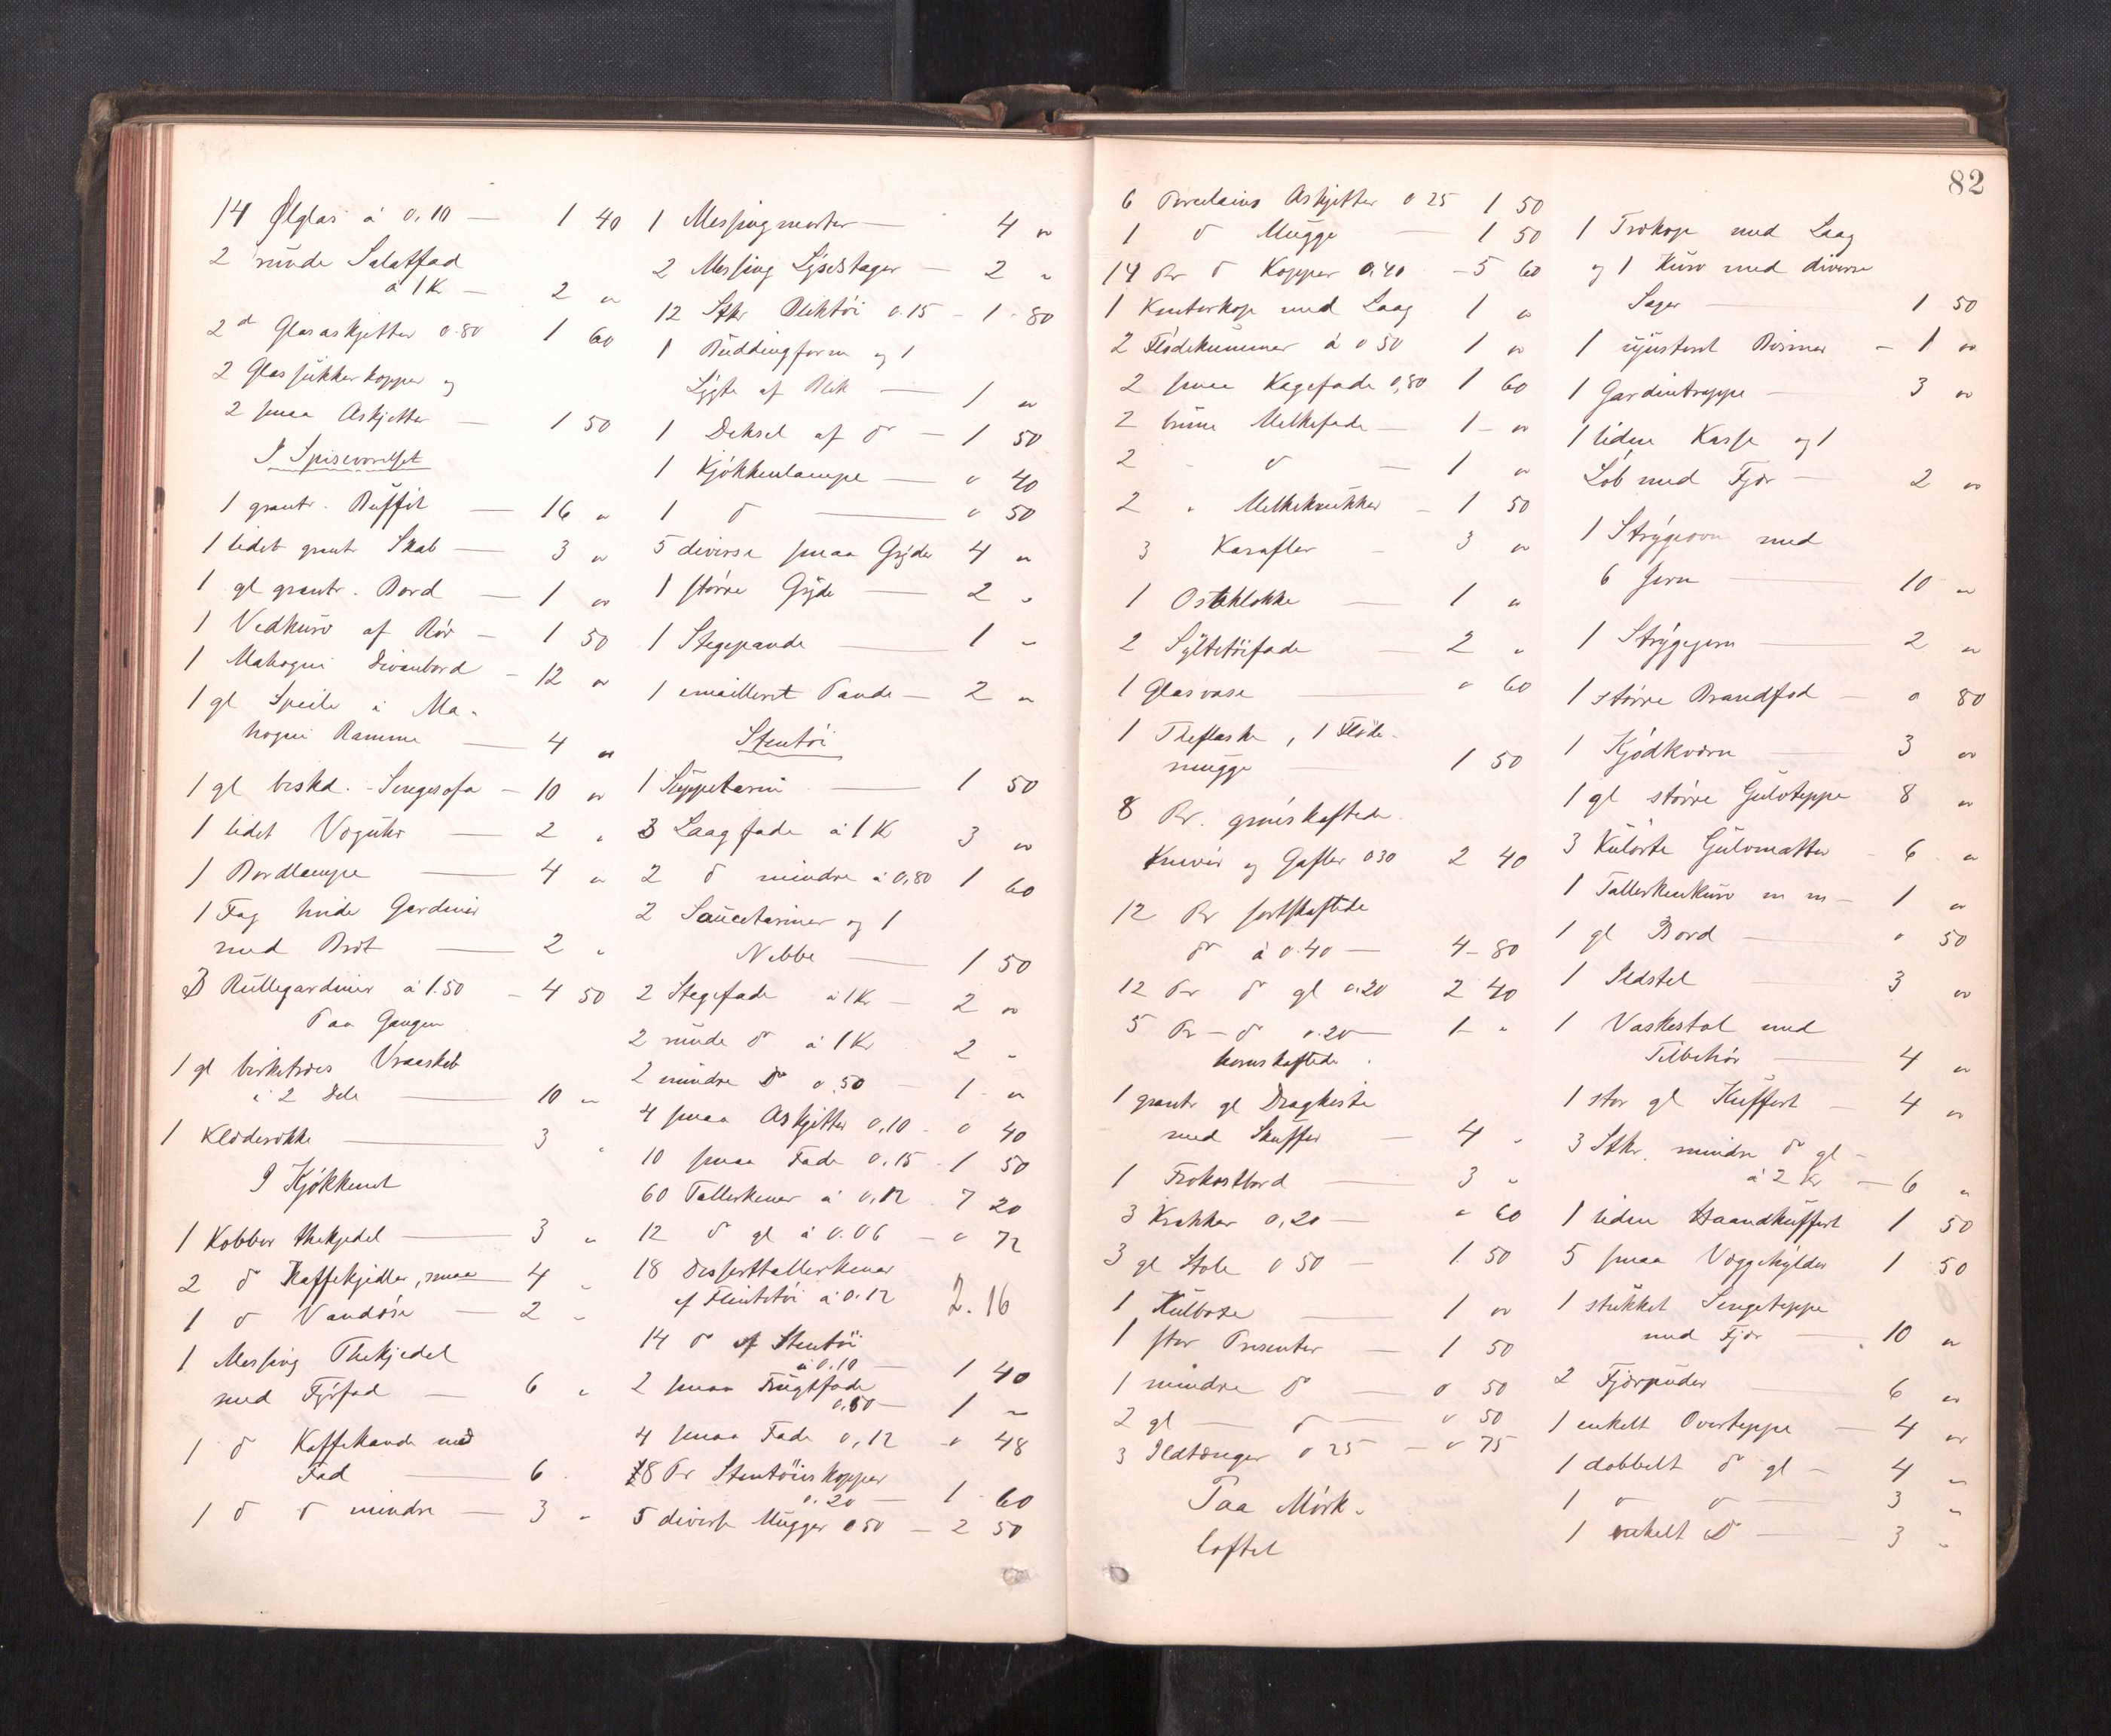 14 Ølglas à 0.10 — 1 40
2 runde Salatfad
à 1 Kr — 2 "
2 d Glasaskjetter 0.80 1 60
2 Glassukkerkopper og
2 smaa Askjetter — 1 50
I Spiseværelset
1 grantr. Buffet — 16 "
1 lidet grantr Skab — 3 "
1 gl grantr. Bord — 1 "
1 Vedkurv af Rør — 1 50
1 Mahogni Divanbord — 12 "
1 gl Speile i Ma-
hogni Ramme — 4 "
1 gl beskd. Sengesofa — 10 "
1 lidet Væguhr — 2 "
1 Bordlampe — 4 "
1 Fag hvide Gardiner
med Bræt — 2 "
3 Rullegardiner à 1.50 — 4 50
Paa Gangen
1 gl birketræes Vraaskab
i 2 Dele — 10 "
1 Klæderække — 3 "
I Kjøkkenet
1 Kobber thekjedel — 3 "
2 do Kaffekjedler, smaa — 4 "
1 do Vandøse — 2 "
1 Messing Thekjedel
med Fyrfad — 6 "
1 do Kaffekande med
Fad — 6 "
1 do do mindre — 3 "
1 Messingmorter — 4 "
2 Messing Lysestager — 2 "
12 Stkr Bliktøi 0.15 — 1 80
1 Buddingform og 1
Lygte af Blik — 1 "
1 Deksel af do — 1 50
1 Kjøkkenlampe — " 40
1 do — " 50
5 diverse smaa Gryder 4 "
1 større Gryde — 2 "
1 Stegepande — 1 "
1 emailleret Pande — 2 "
Stentøi
1 Suppeterin — 1 50
3 Laagfade à 1 Kr 3 "
2 do mindre à 0,80 1 60
2 Sauceteriner og 1
Nebbe — 1 50
2 Stegefade à 1 Kr — 2 "
2 runde do à 1 Kr 2 "
2 mindre do 0.50 — 1 "
4 smaa Askjetter 0,10 - " 40
10 smaa Fade 0.15 - 1 50
60 Tallerkener à 0,12 7 20
12 do gl à 0.06 — " 72
18 Desserttallerkener
af Flintetøi à 0.12 2.16
14 do af Stentøi
à 0.10 — 1 40
2 smaa Frugtfade
0.50 — 1 "
4 smaa Fade 0,12 " 48
8 Pr Stentøies kopper
0.20 — 1 60
5 diverse Mugger 0 50 — 2 50
82
6 Porcelains Askjetter 0 25 1 50
1 do Mugge — 1 50
14 Pr do Kopper 0.40 — 5 60
1 Kenterkop med Laag 1 "
2 Flødekummer à 0 50 1 "
2 smaa Kagefade 0,80 1 60
2 brune Melkefade — 1 "
2 do — 1 "
2 " Melkekrukker — 1 50
3 Karafler — 3 "
1 Osteklokke — 1 "
2 Syltetøifade — 2 "
1 Glasvase — " 60
1 Theflaske, 1 Fløde-
mugge — 1 50
8 Pr. graaskaftede
Knive og Gafler 0 30 2 40
12 Pr sortskaftede
do à 0.40 — 4 80
12 Pr do gl 0.20 2 40
5 Pr — do 0.20 — 1 "
hornskaftede
1 grantr gl Dragkiste
med Skuffer — 4 "
1 Frokostbord — 3 "
3 Krakker 0,20 — " 60
3 gl Stole 0 50 — 1 50
1 Kulbøse — 1 "
1 stor Presenter — 1 50
1 mindre do — " 50
2 gl — do — " 50
3 Ildtænger 0 25 — " 75
Paa Mørk-
loftet
1 Trækop med Laag
og 1 Kurv med diverse
Sager — 1 50
1 ujusteret Bismer — 1 "
1 Gardintrappe — 3 "
1 liden Kasse og 1
Løb med Fjær — 2 "
1 Strygeovn med
6 Jern — 10 "
1 Strygejern — 2 "
1 større Brandfod — " 80
1 Kjødkværn — 3 "
1 gl større Gulvteppe 8 "
3 Kulørte Gulvmatter — 6 "
1 Tallerkenkurv m m — 1 "
1 gl Bord — " 50
1 Ildstel — 3 "
1 Vaskestol med
Tilbehør — 4 "
1 stor gl Kuffert — 4 "
3 Stkr. mindre do gl —
à 2 Kr — 6 "
1 liden Haandkuffert 1 50
5 smaa Væggehylder 1 50
1 stukket Sengeteppe
med Fjær — 10 "
2 Fjærpuder — 6 "
1 enkelt Overteppe — 4 "
1 dobbelt do gl — 4 "
1 do do 3 "
1 enkelt do — 3 "